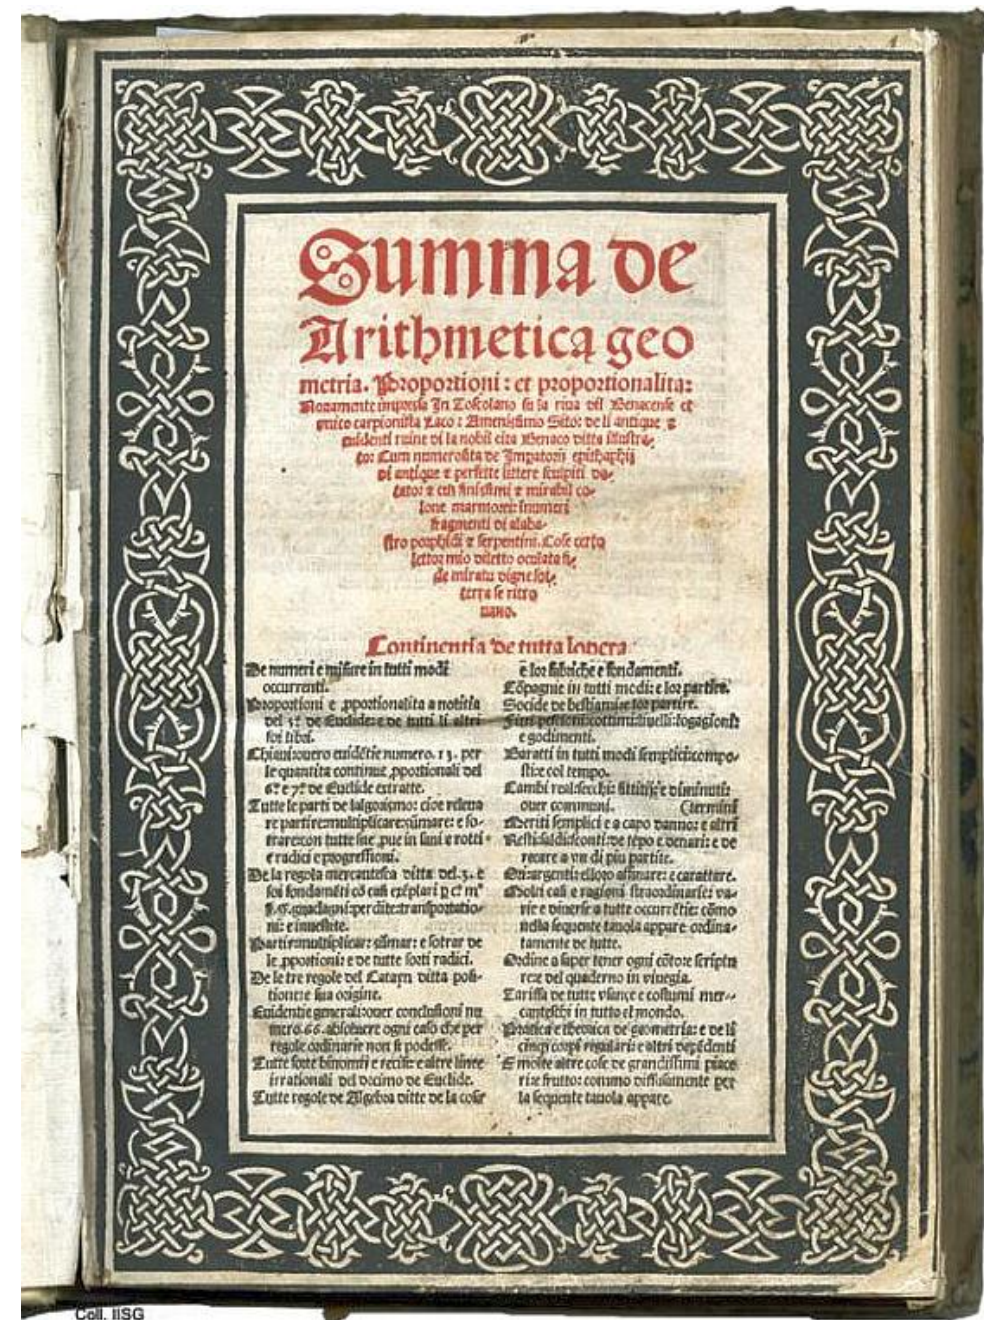 Summa de
Arithmetica geo
metria. Proportioni: et proportionalita:
Novamente impressa In Toscolano su la riva dil Benacense et
unico carpionista Laco: Amenissimo Sito: de li antique &
evidenti ruine di la nobil cita Benaco ditta illustra-
to: Cum numerosita de Imperatorij epithaphij
di antique e perfette littere sculpiti do-
tato: e cũ finissimi e mirabil co-
lone marmorei: inumeri
fragmenti di alaba-
stro porphidi e serpentini. Cose certo
lettor mio diletto oculata fi-
de miratu digne sot-
terra se ritro
vano.
Continentia de tutta lopera
De numeri e misure in tutti modi
occurrenti.
Proportioni e ꝓportionalita a notitia
del 5º de Euclide: e de tutti li altri
soi libri.
Chiavi: overo evidẽtie numero. 13. per
le quantita continue ꝓportionali del
6º e 7º de Euclide extratte.
Tutte le parti de lalgorismo: cioe releva
re partire: multiplicare: sũmare: e so-
trare: con tutte sue ꝓve in sani e rotti
e radici e progressioni.
De la regola mercantesca ditta del .3. e
soi fondamẽti cõ casi exẽplari
guadagni: perdite: transportatio-
ni: e investite.
Partir: multiplicar: sũmar: e sotrar de
le ꝓportioni: e de tutte sorti radici.
De le tre regole del Catayn ditta posi-
tione: e sua origine.
Evidentie generali: over conclusioni nu
mero .66. absolvere ogni caso che per
regole ordinarie non si podesse.
Tutte sorte binomij e recisi: e altre linee
irrationali del decimo de Euclide.
Tutte regole de Algebra ditte de la cosa
e lor fabriche e fondamenti.
Cõpagnie in tutti modi: e lor partire.
Socide de bestiami: e lor partire.
Fitti: pesciõni: cottimi: livelli: logagioni:
e godimenti.
Baratti in tutti modi semplici: compo-
sti: e col tempo.
Cambi reali: secchi: fittitij: e diminuti:
over communi.
Meriti semplici e a capo danno: e altri
(termini
Resti: saldi: sconti: de tẽpo e denari: e de
recare a un di piu partite.
Ori: argenti: e lloro affinare: e carattare.
Molti casi e ragioni straordinarie: va-
rie e diverse a tutte occurrẽtie: cõmo
nella sequente tavola appare ordina-
tamente de tutte.
Ordine a saper tener ogni cõto: e scriptu
re: e del quaderno in vinegia.
Tariffa de tutte usançe e costumi mer-
canteschi in tutto el mondo.
Pratica e theorica de geometria: e de li
cinq; corpi regulari: e altri depẽdenti
E molte altre cose de grandissimi piace
ri: e frutto: commo diffusamente per
la sequente tavola appare.
Coll. IISG